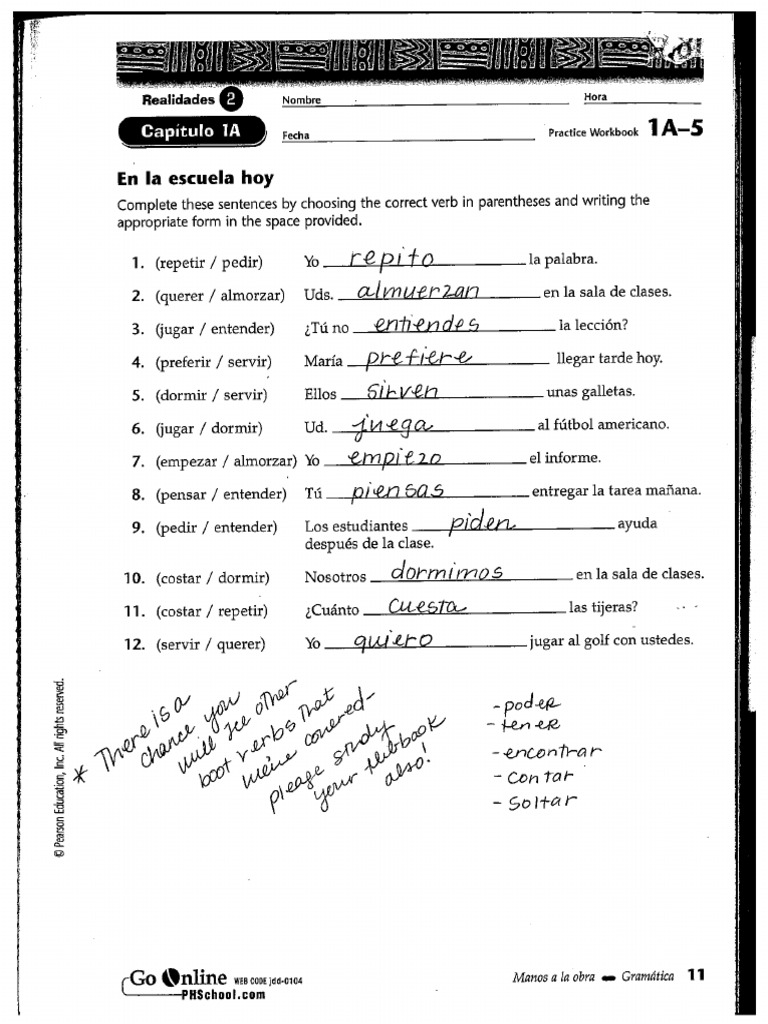 Realidades 2
Nombre
Hora
Capítulo 1A
Fecha
Practice Workbook 1A–5
En la escuela hoy
Complete these sentences by choosing the correct verb in parentheses and writing the
appropriate form in the space provided.
1. (repetir / pedir) Yo repito la palabra.
2. (querer / almorzar) Uds. almuerzan en la sala de clases.
3. (jugar / entender) ¿Tú no entiendes la lección?
4. (preferir / servir) María prefiere llegar tarde hoy.
5. (dormir / servir) Ellos sirven unas galletas.
6. (jugar / dormir) Ud. juega al fútbol americano.
7. (empezar / almorzar) Yo empiezo el informe.
8. (pensar / entender) Tú piensas entregar la tarea mañana.
9. (pedir / entender) Los estudiantes piden ayuda
después de la clase.
10. (costar / dormir) Nosotros dormimos en la sala de clases.
11. (costar / repetir) ¿Cuánto cuesta las tijeras?
12. (servir / querer) Yo quiero jugar al golf con ustedes.
* There is a
chance you
will see other
boot verbs that
we've covered-
please study
your flipbook
also!
- poder
- tener
- encontrar
- contar
- soltar
© Pearson Education, Inc. All rights reserved.
Go Online WEB CODE jdd-0104
PHSchool.com
Manos a la obra — Gramática 11